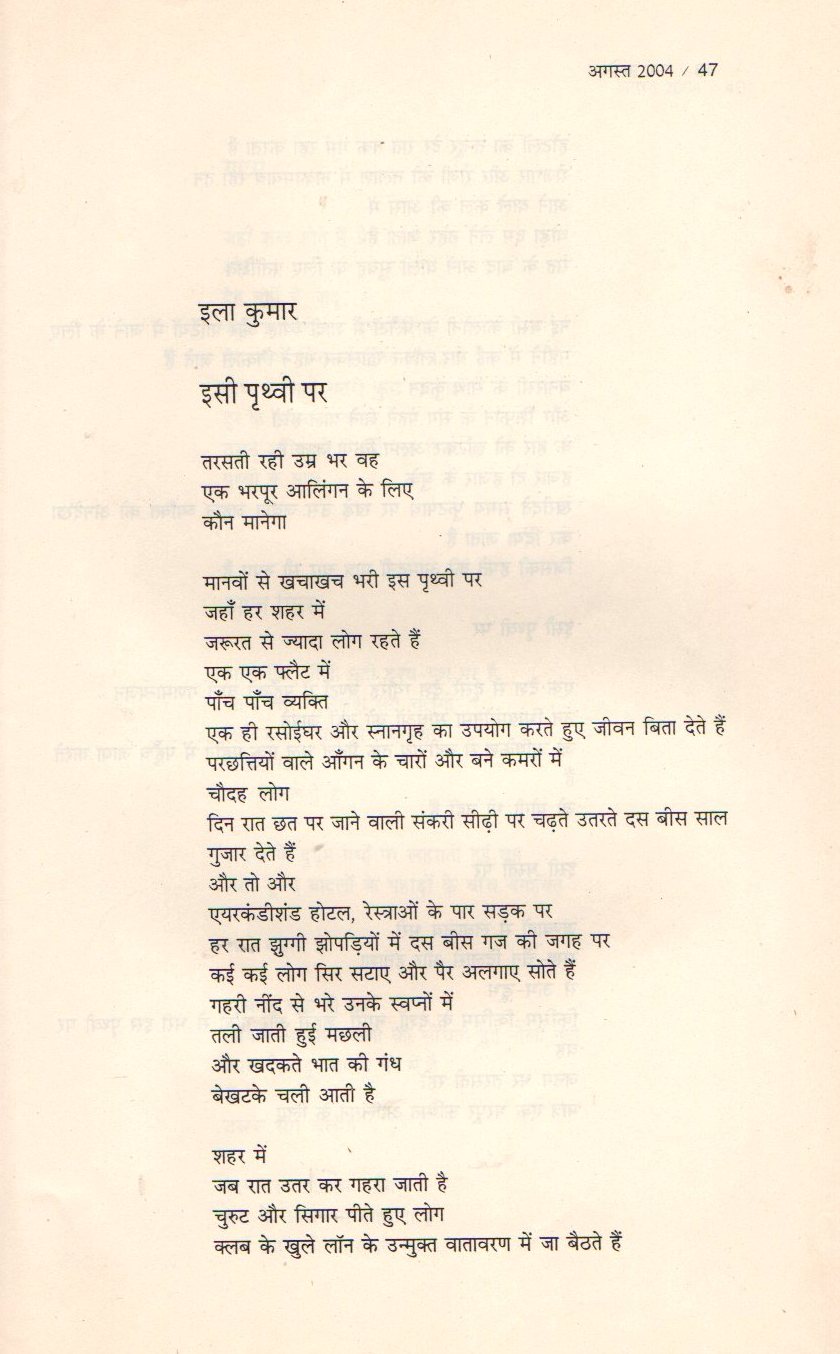 अगस्त 2004 / 47
इला कुमार
इसी पृथ्वी पर
तरसती रही उम्र भर वह
एक भरपूर आलिंगन के लिए
कौन मानेगा
मानवों से खचाखच भरी इस पृथ्वी पर
जहाँ हर शहर में
जरूरत से ज्यादा लोग रहते हैं
एक एक फ्लैट में
पाँच पाँच व्यक्ति
एक ही रसोईघर और स्नानगृह का उपयोग करते हुए जीवन बिता देते हैं
परछत्तियों वाले आँगन के चारों और बने कमरों में
चौदह लोग
दिन रात छत पर जाने वाली संकरी सीढ़ी पर चढ़ते उतरते दस बीस साल
गुजार देते हैं
और तो और
एयरकंडीशंड होटल, रेस्त्राओं के पार सड़क पर
हर रात झुग्गी झोपड़ियों में दस बीस गज की जगह पर
कई कई लोग सिर सटाए और पैर अलगाए सोते हैं
गहरी नींद से भरे उनके स्वप्नों में
तली जाती हुई मछली
और खदकते भात की गंध
बेखटके चली आती है
शहर में
जब रात उतर कर गहरा जाती है
चुरुट और सिगार पीते हुए लोग
क्लब के खुले लॉन के उन्मुक्त वातावरण में जा बैठते हैं